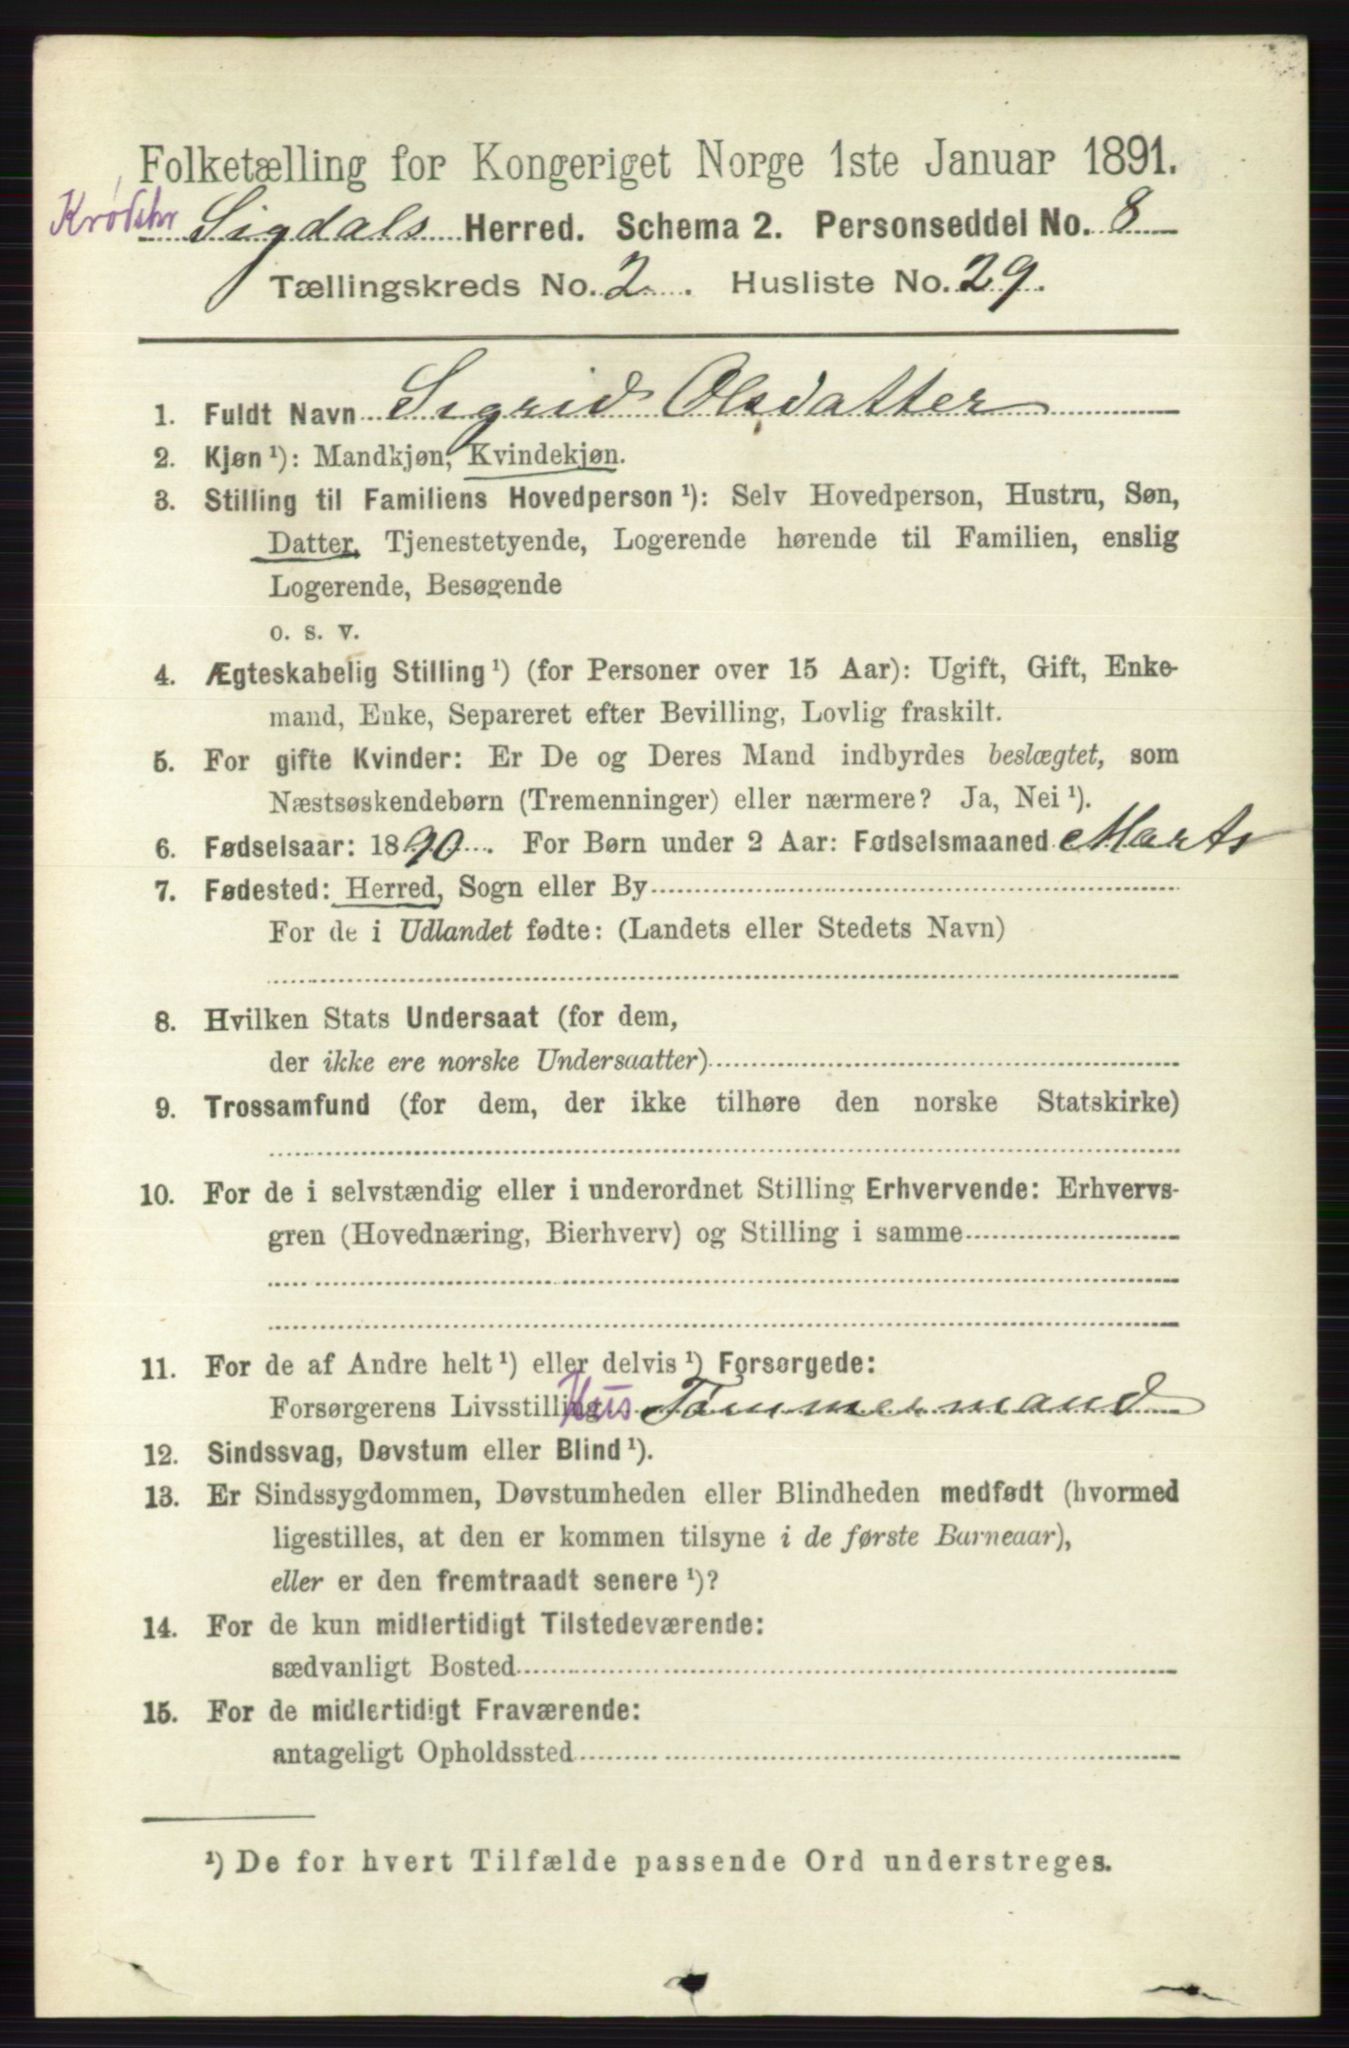 Folketælling for Kongeriget Norge 1ste Januar 1891.
Sigdals Herred. Schema 2. Personseddel No. 8
Tællingskreds No. 2. Husliste No. 29.
1. Fuldt Navn Sigrid Olsdatter
2. Kjøn¹): Mandkjøn, Kvindekjøn.
3. Stilling til Familiens Hovedperson¹): Selv Hovedperson, Hustru, Søn,
Datter, Tjenestetyende, Logerende hørende til Familien, enslig
Logerende, Besøgende
o. s. v.
4. Ægteskabelig Stilling¹) (for Personer over 15 Aar): Ugift, Gift, Enke-
mand, Enke, Separeret efter Bevilling, Lovlig fraskilt.
5. For gifte Kvinder: Er De og Deres Mand indbyrdes beslægtet, som
Næstsøskendebørn (Tremenninger) eller nærmere? Ja, Nei¹).
6. Fødselsaar: 1890. For Børn under 2 Aar: Fødselsmaaned Marts
7. Fødested: Herred, Sogn eller By
For de i Udlandet fødte: (Landets eller Stedets Navn)
8. Hvilken Stats Undersaat (for dem,
der ikke ere norske Undersaatter)
9. Trossamfund (for dem, der ikke tilhøre den norske Statskirke)
10. For de i selvstændig eller i underordnet Stilling Erhvervende: Erhvervs-
gren (Hovednæring, Bierhverv) og Stilling i samme
11. For de af Andre helt¹) eller delvis¹) Forsørgede:
Forsørgerens Livsstilling Hus Tømmermand
12. Sindssvag, Døvstum eller Blind¹).
13. Er Sindssygdommen, Døvstumheden eller Blindheden medfødt (hvormed
ligestilles, at den er kommen tilsyne i de første Barneaar),
eller er den fremtraadt senere¹)?
14. For de kun midlertidigt Tilstedeværende:
sædvanligt Bosted
15. For de midlertidigt Fraværende:
antageligt Opholdssted
¹) De for hvert Tilfælde passende Ord understreges.